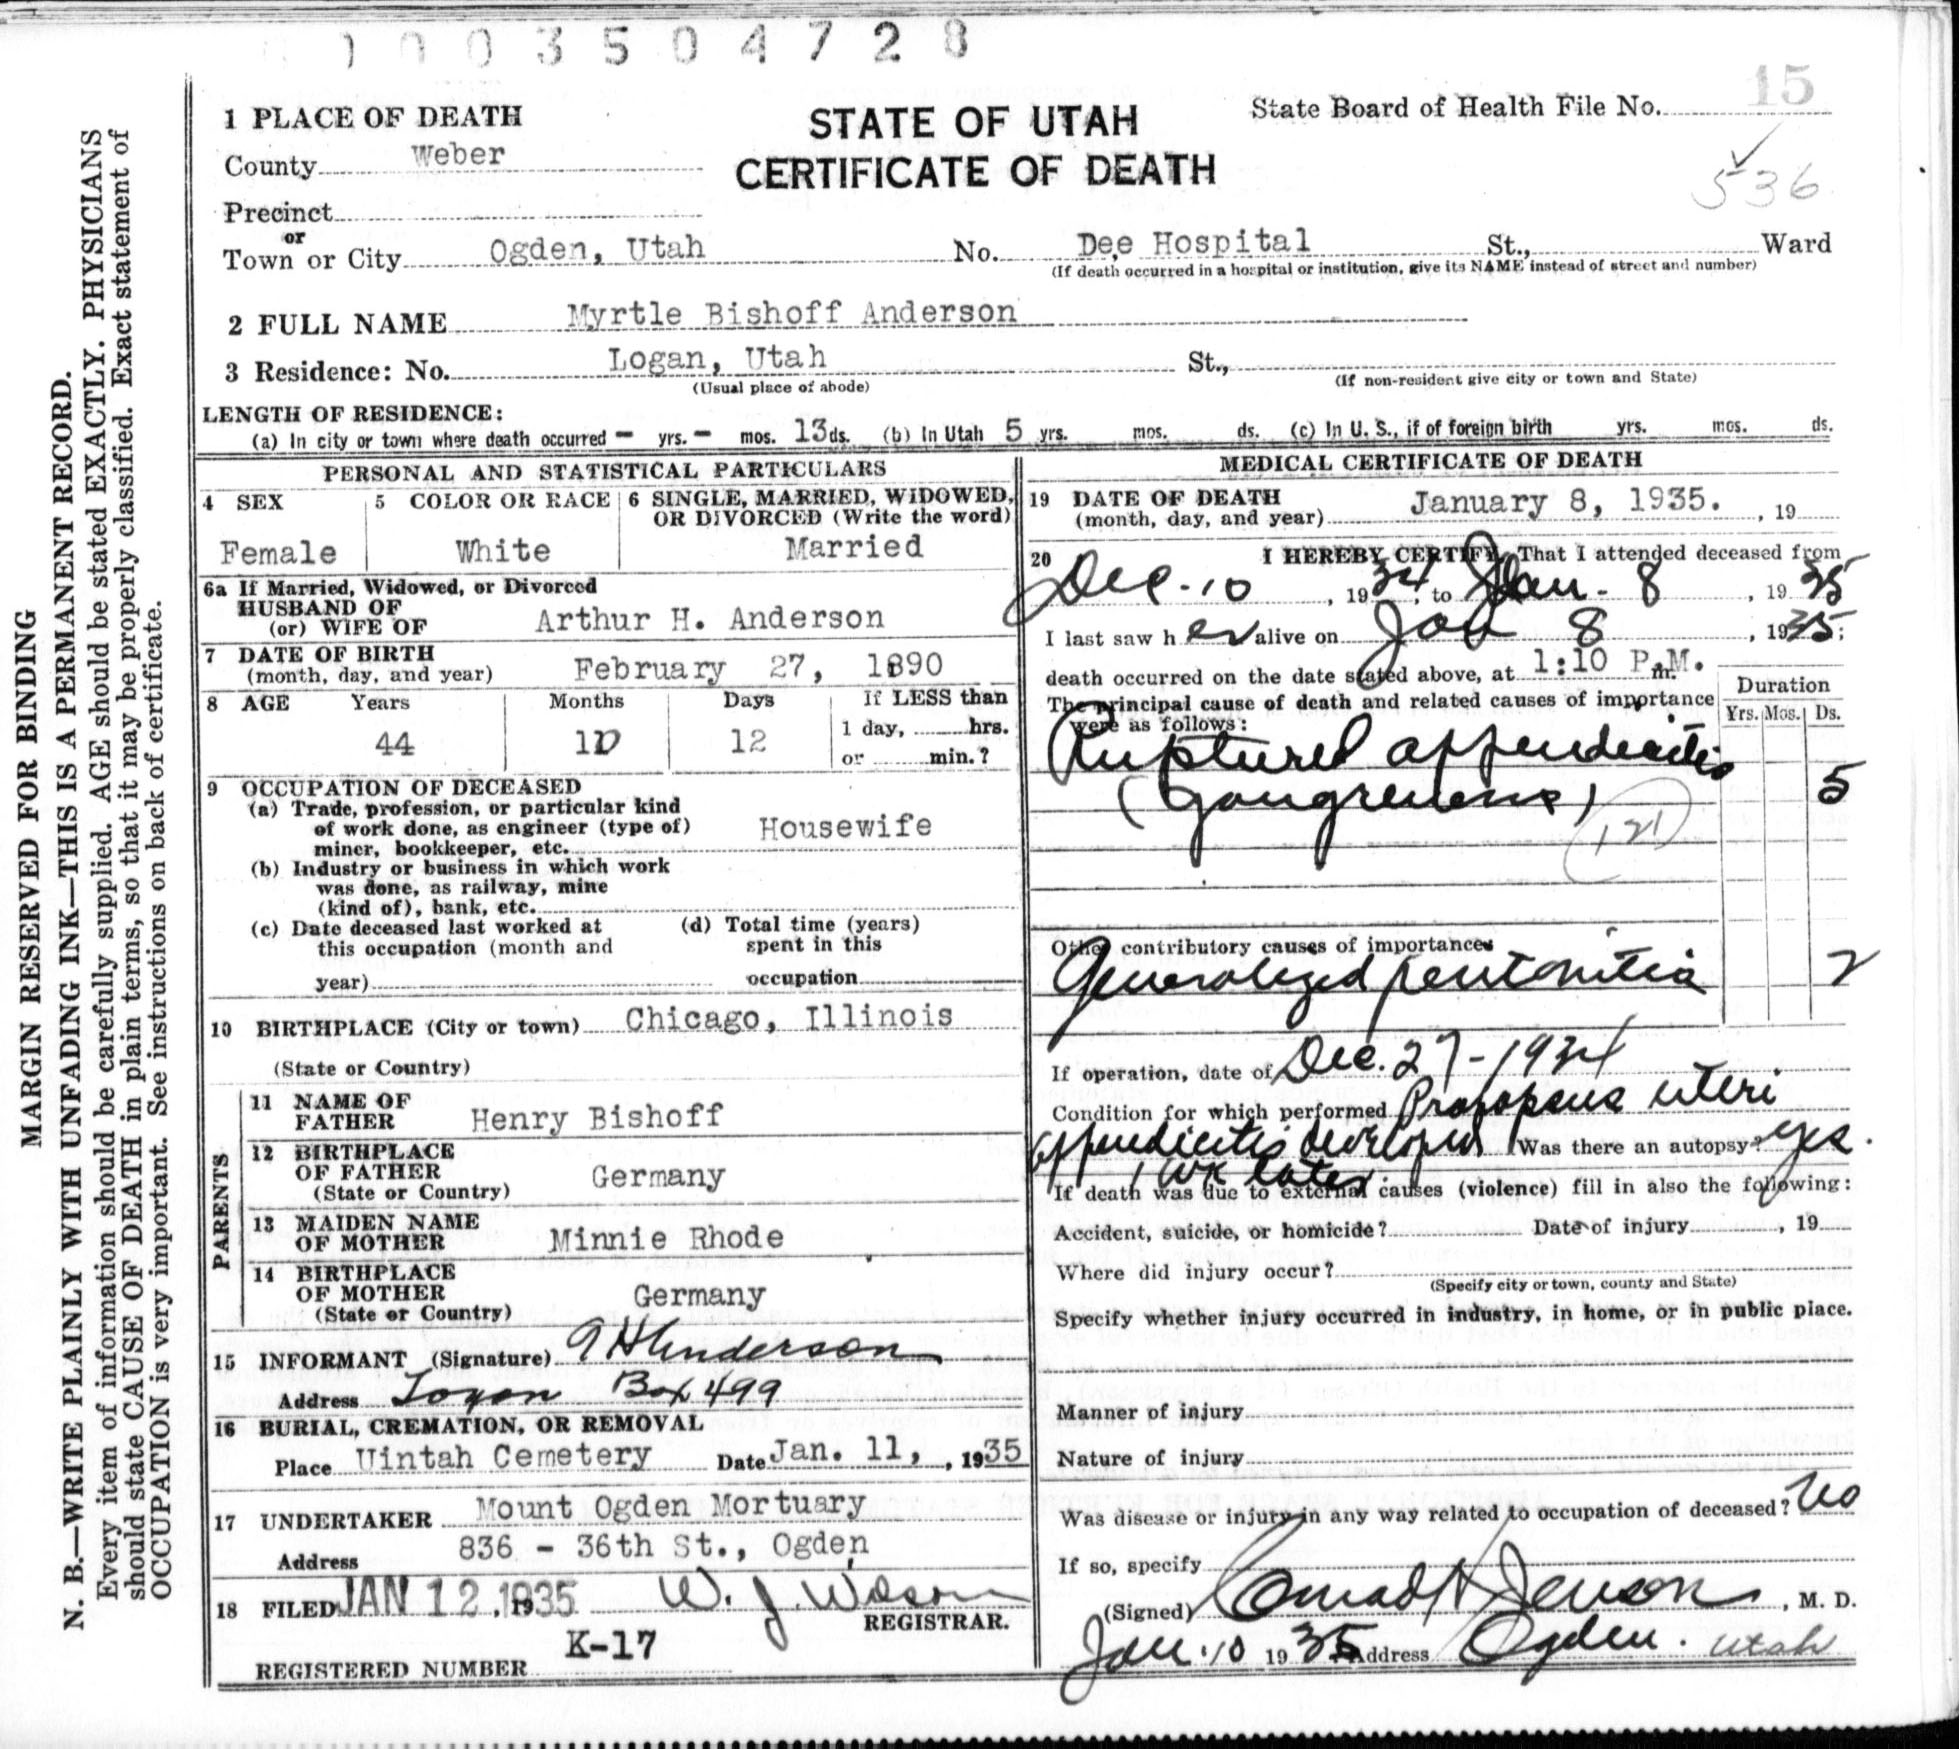 1003504728
15
1 PLACE OF DEATH
STATE OF UTAH
CERTIFICATE OF DEATH
State Board of Health File No.
536
County Weber
Precinct
or
Town or City Ogden, Utah No. Dee Hospital St., Ward
(If death occurred in a hospital or institution, give its NAME instead of street and number)
2 FULL NAME Myrtle Bishoff Anderson
3 Residence: No. Logan, Utah St.,
(Usual place of abode) (If non-resident give city or town and State)
LENGTH OF RESIDENCE:
(a) In city or town where death occurred - yrs. - mos. 13 ds. (b) In Utah 5 yrs. mos. ds. (c) In U. S., if of foreign birth yrs. mos. ds.
PERSONAL AND STATISTICAL PARTICULARS
4 SEX
Female
5 COLOR OR RACE
White
6 SINGLE, MARRIED, WIDOWED,
OR DIVORCED (Write the word)
Married
6a If Married, Widowed, or Divorced
HUSBAND OF
(or) WIFE OF Arthur H. Anderson
7 DATE OF BIRTH
(month, day, and year) February 27, 1890
8 AGE Years Months Days If LESS than
44 10 12 1 day, hrs.
or min.?
9 OCCUPATION OF DECEASED
(a) Trade, profession, or particular kind
of work done, as engineer (type of) Housewife
miner, bookkeeper, etc.
(b) Industry or business in which work
was done, as railway, mine
(kind of), bank, etc.
(c) Date deceased last worked at (d) Total time (years)
this occupation (month and spent in this
year) occupation
10 BIRTHPLACE (City or town) Chicago, Illinois
(State or Country)
PARENTS
11 NAME OF
FATHER Henry Bishoff
12 BIRTHPLACE
OF FATHER Germany
(State or Country)
13 MAIDEN NAME
OF MOTHER Minnie Rhode
14 BIRTHPLACE
OF MOTHER Germany
(State or Country)
15 INFORMANT (Signature) A H Anderson
Address Logan Box 499
16 BURIAL, CREMATION, OR REMOVAL
Place Uintah Cemetery Date Jan. 11, , 1935
17 UNDERTAKER Mount Ogden Mortuary
Address 836 - 36th St., Ogden
18 FILED JAN 12 1935 W. J. Wilson
REGISTRAR.
REGISTERED NUMBER K-17
MEDICAL CERTIFICATE OF DEATH
19 DATE OF DEATH
(month, day, and year) January 8, 1935. , 19
20 I HEREBY CERTIFY, That I attended deceased from
Dec-10 , 1934, to Jan-8 , 1935
I last saw her alive on Jan 8 , 1935;
death occurred on the date stated above, at 1:10 P.M. m.
The principal cause of death and related causes of importance
were as follows:
Duration
Yrs. Mos. Ds.
Ruptured appendicitis
(Gangrenous) 5
121
Other contributory causes of importance
Generalized peritonitis 2
If operation, date of Dec. 27-1934
Condition for which performed Prolapsus uteri
appendicitis developed Was there an autopsy? yes.
1 wk later
If death was due to external causes (violence) fill in also the following:
Accident, suicide, or homicide? Date of injury , 19
Where did injury occur?
(Specify city or town, county and State)
Specify whether injury occurred in industry, in home, or in public place.
Manner of injury
Nature of injury
Was disease or injury in any way related to occupation of deceased? No
If so, specify
(Signed) Conrad H Jenson , M. D.
Jan. 10 1935 Address Ogden. Utah
MARGIN RESERVED FOR BINDING
N. B.—WRITE PLAINLY WITH UNFADING INK—THIS IS A PERMANENT RECORD.
Every item of information should be carefully supplied. AGE should be stated EXACTLY. PHYSICIANS
should state CAUSE OF DEATH in plain terms, so that it may be properly classified. Exact statement of
OCCUPATION is very important. See instructions on back of certificate.